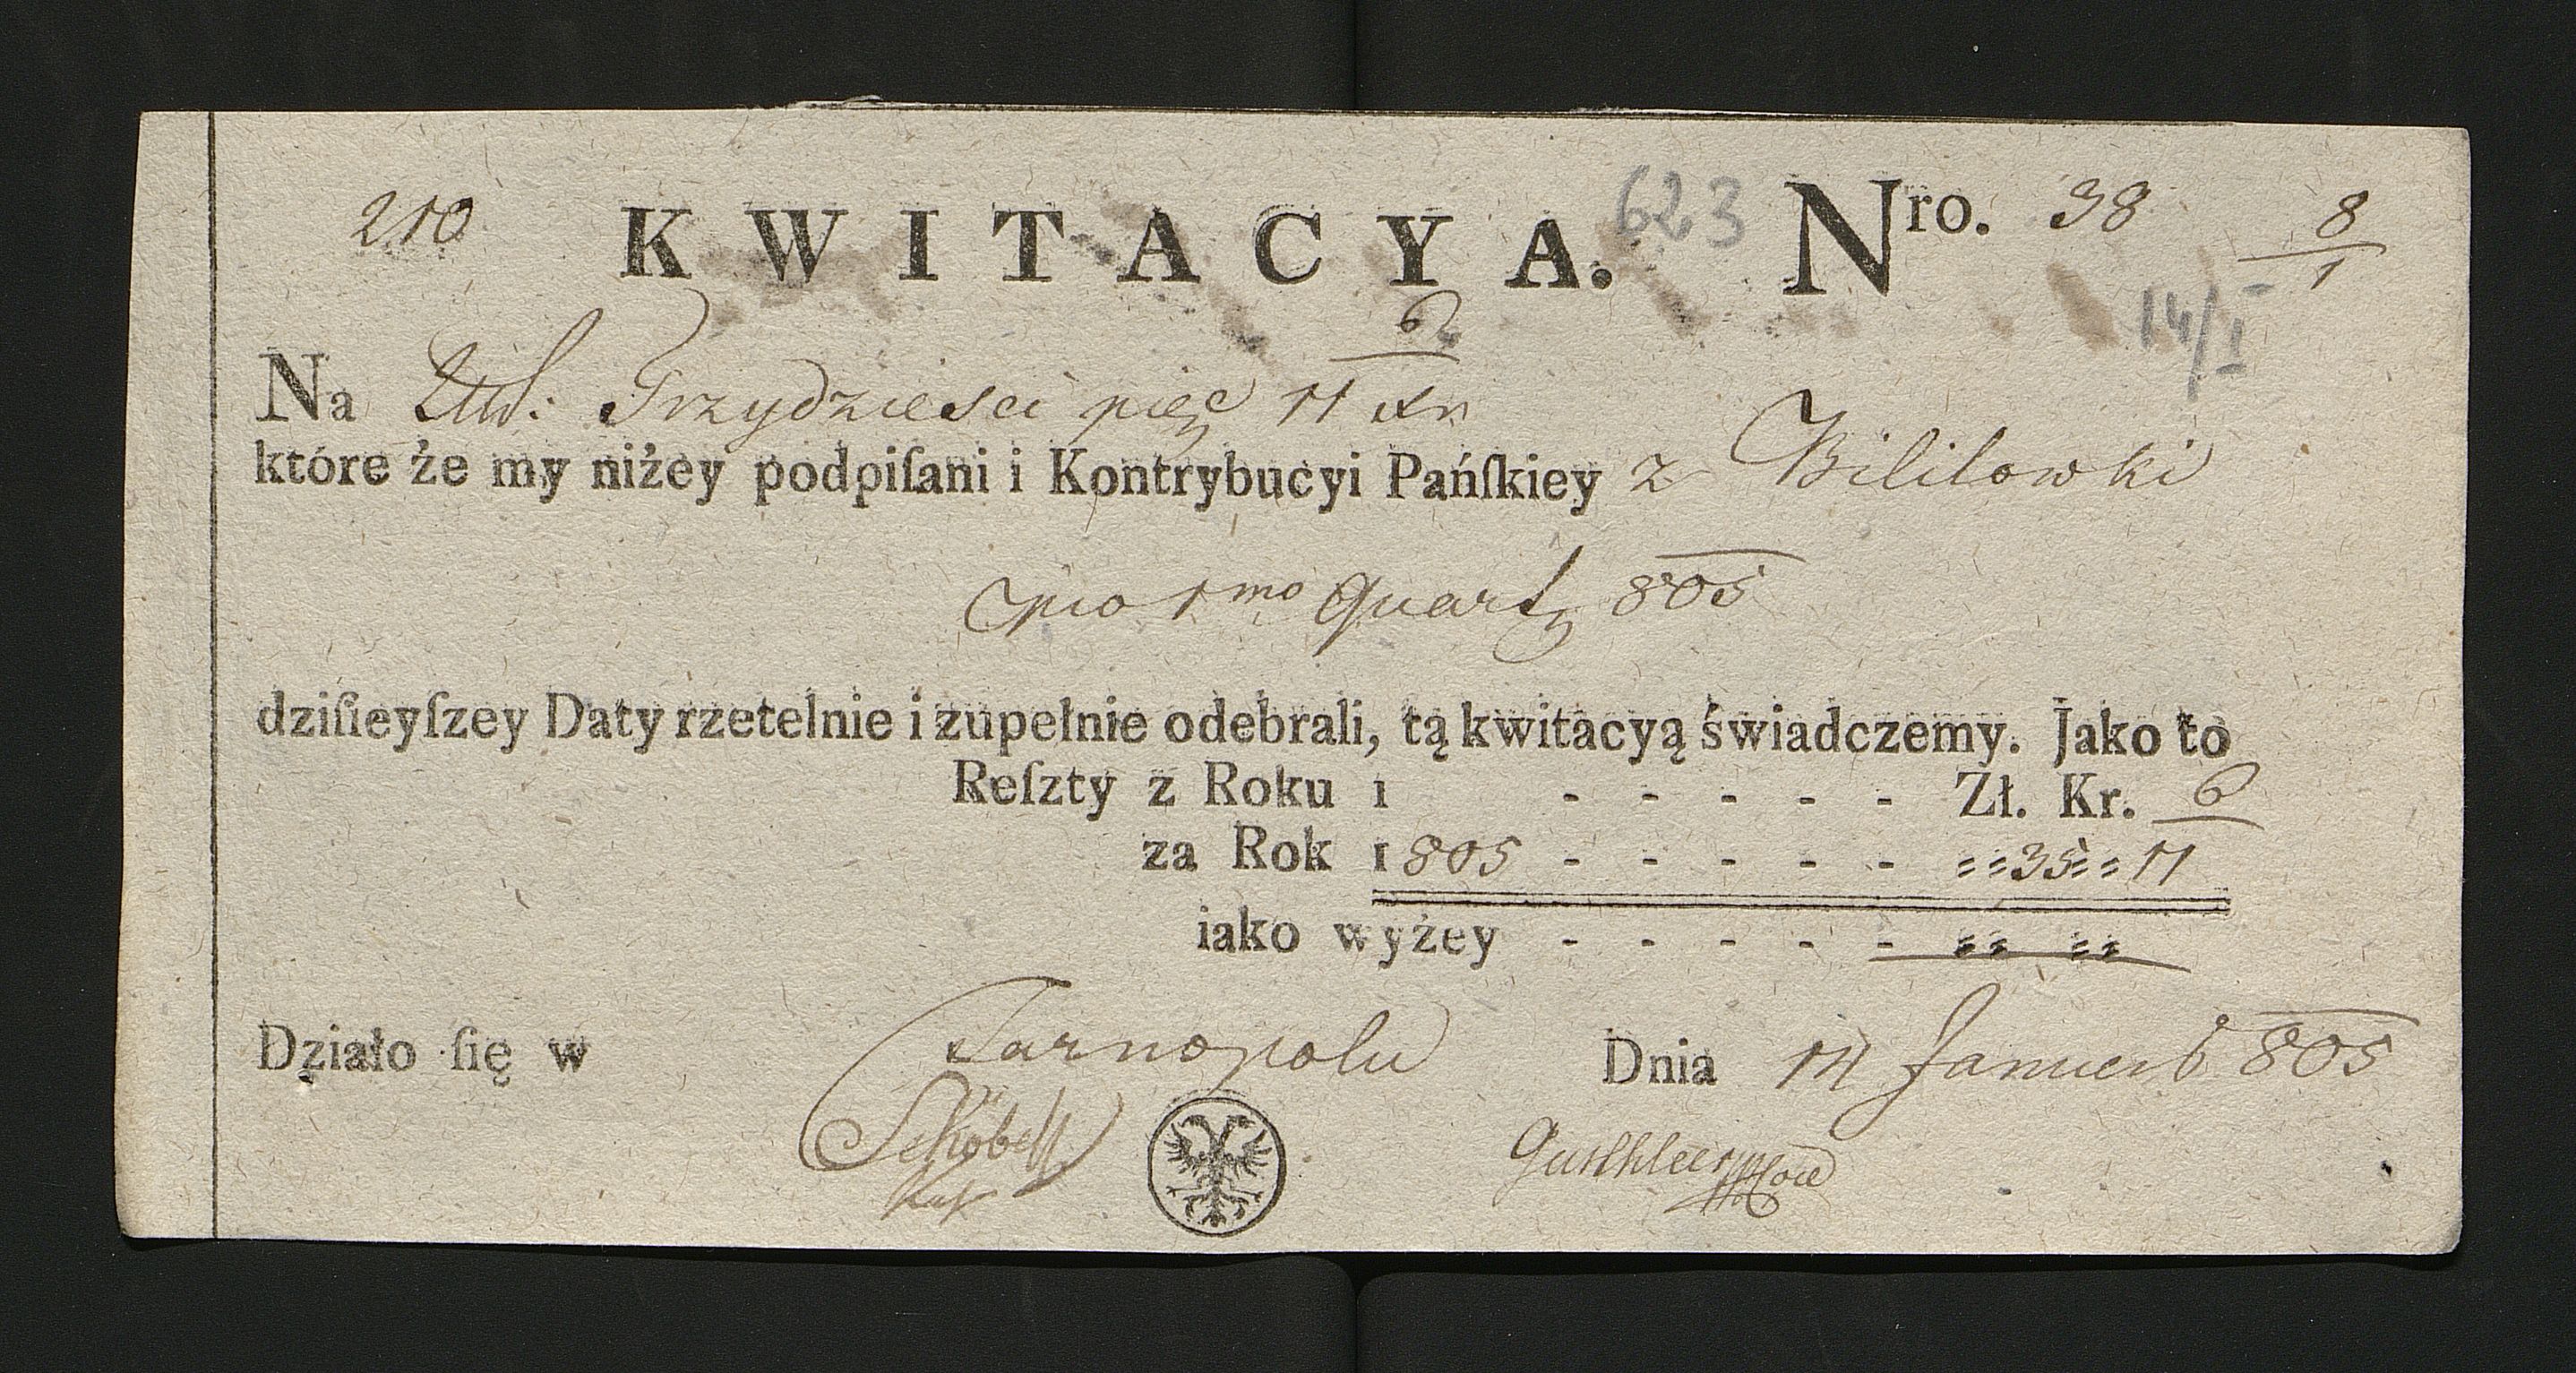 210 KWITACYA. 623 Nro. 38 8/1
14/I
6
Na Trzydziesci pięc 11 xr
które że my niżey podpiſani i Kontrybucyi Pańſkiey z Bililowki
pro 1mo Quart 805
dziſieyſzey Daty rzetelnie i zupełnie odebrali, tą kwitacyą świadczemy. Jako to
Reſzty z Roku 1 - - - - - Zł. Kr. 6
za Rok 1805 - - - - - 35 11
iako wyżey - - - - -
Działo ſię w Tarnopolu Dnia 14 Januer 805